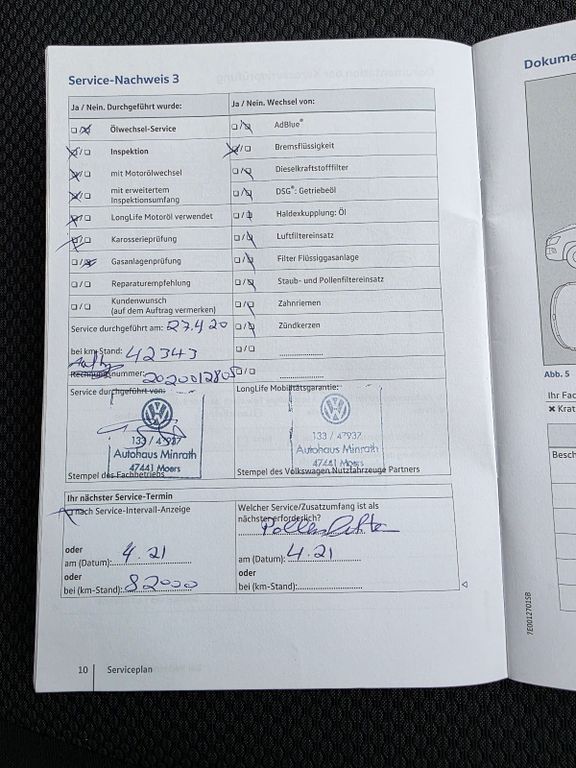 Service-Nachweis 3
Dokume
Ja / Nein. Durchgeführt wurde: Ja / Nein. Wechsel von:
Ölwechsel-Service AdBlue®
Inspektion Bremsflüssigkeit
mit Motorölwechsel Dieselkraftstofffilter
mit erweitertem Inspektionsumfang DSG®: Getriebeöl
LongLife Motoröl verwendet Haldexkupplung: Öl
Karosserieprüfung Luftfiltereinsatz
Gasanlagenprüfung Filter Flüssiggasanlage
Reparaturempfehlung Staub- und Pollenfiltereinsatz
Kundenwunsch Zahnriemen
(auf dem Auftrag vermerken)
Service durchgeführt am: 27.4.20 Zündkerzen
bei km-Stand: 42343
nummer: 2020012805
Service durchgeführt von: LongLife Mobilitätsgarantie:
133 / 47937 133 / 47937
Autohaus Minrath Autohaus Minrath
47441 Moers 47441 Moers
Stempel des Fachbetriebs Stempel des Volkswagen Nutzfahrzeuge Partners
Ihr nächster Service-Termin
nach Service-Intervall-Anzeige Welcher Service/Zusatzumfang ist als
nächster erforderlich?
Pollenfilter
oder
am (Datum): 4.21 am (Datum): 4.21
oder oder
bei (km-Stand): 82000 bei (km-Stand):
10 Serviceplan
Abb. 5
Ihr Fac
✖ Krat
Besch
7E0012701SB